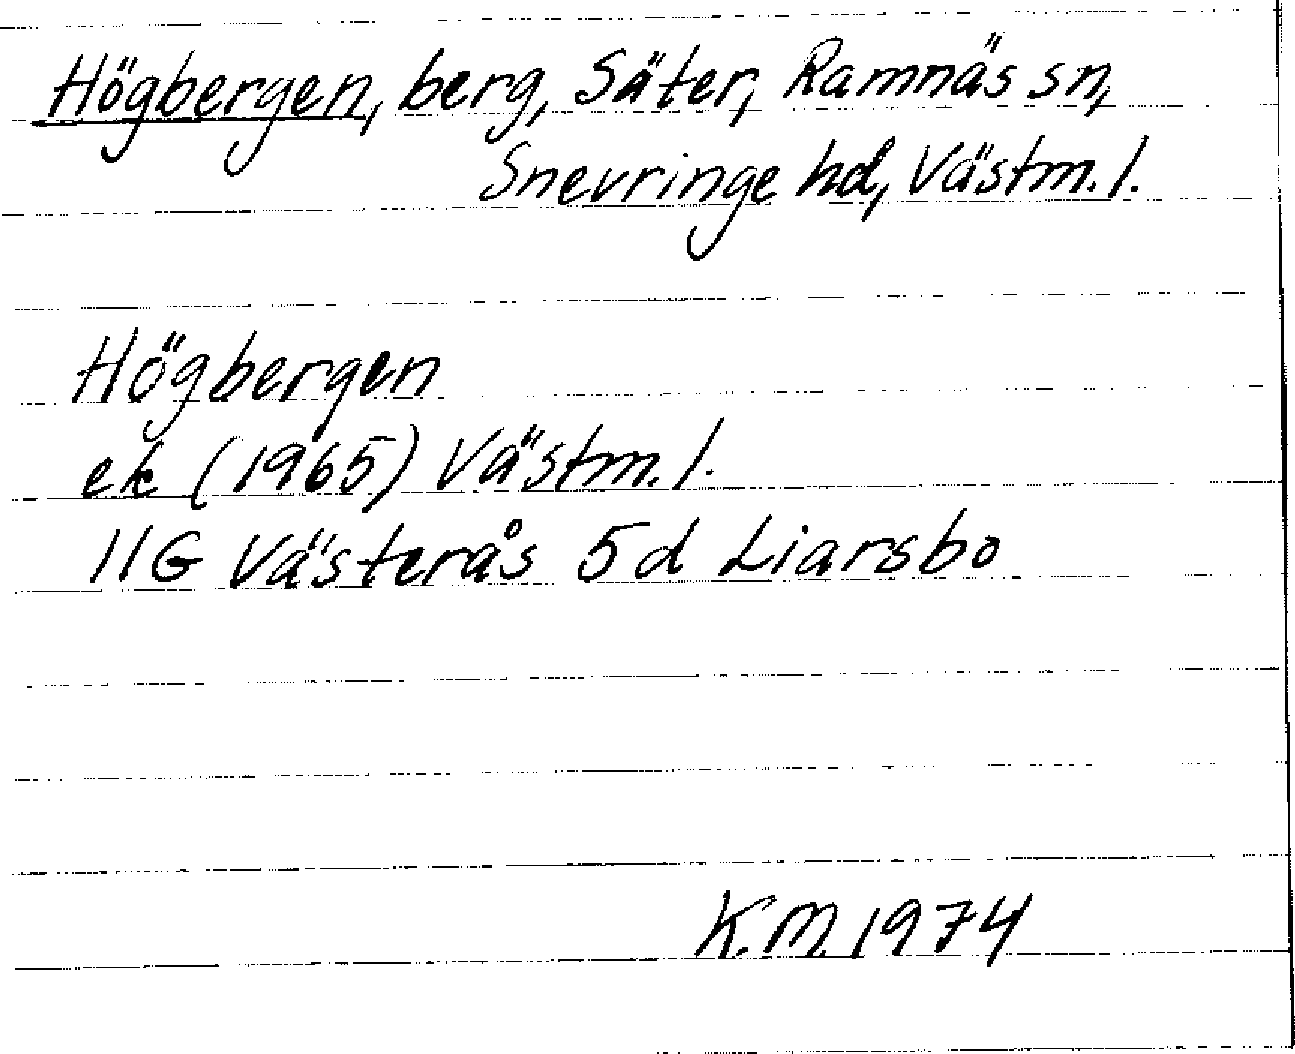 Högbergen, berg, Säter, Ramnäs sn,
Snevringe hd, Västm. l.
Högbergen
ek (1965) Västm. l.
11G Västerås 5d Liarsbo
K.M. 1974